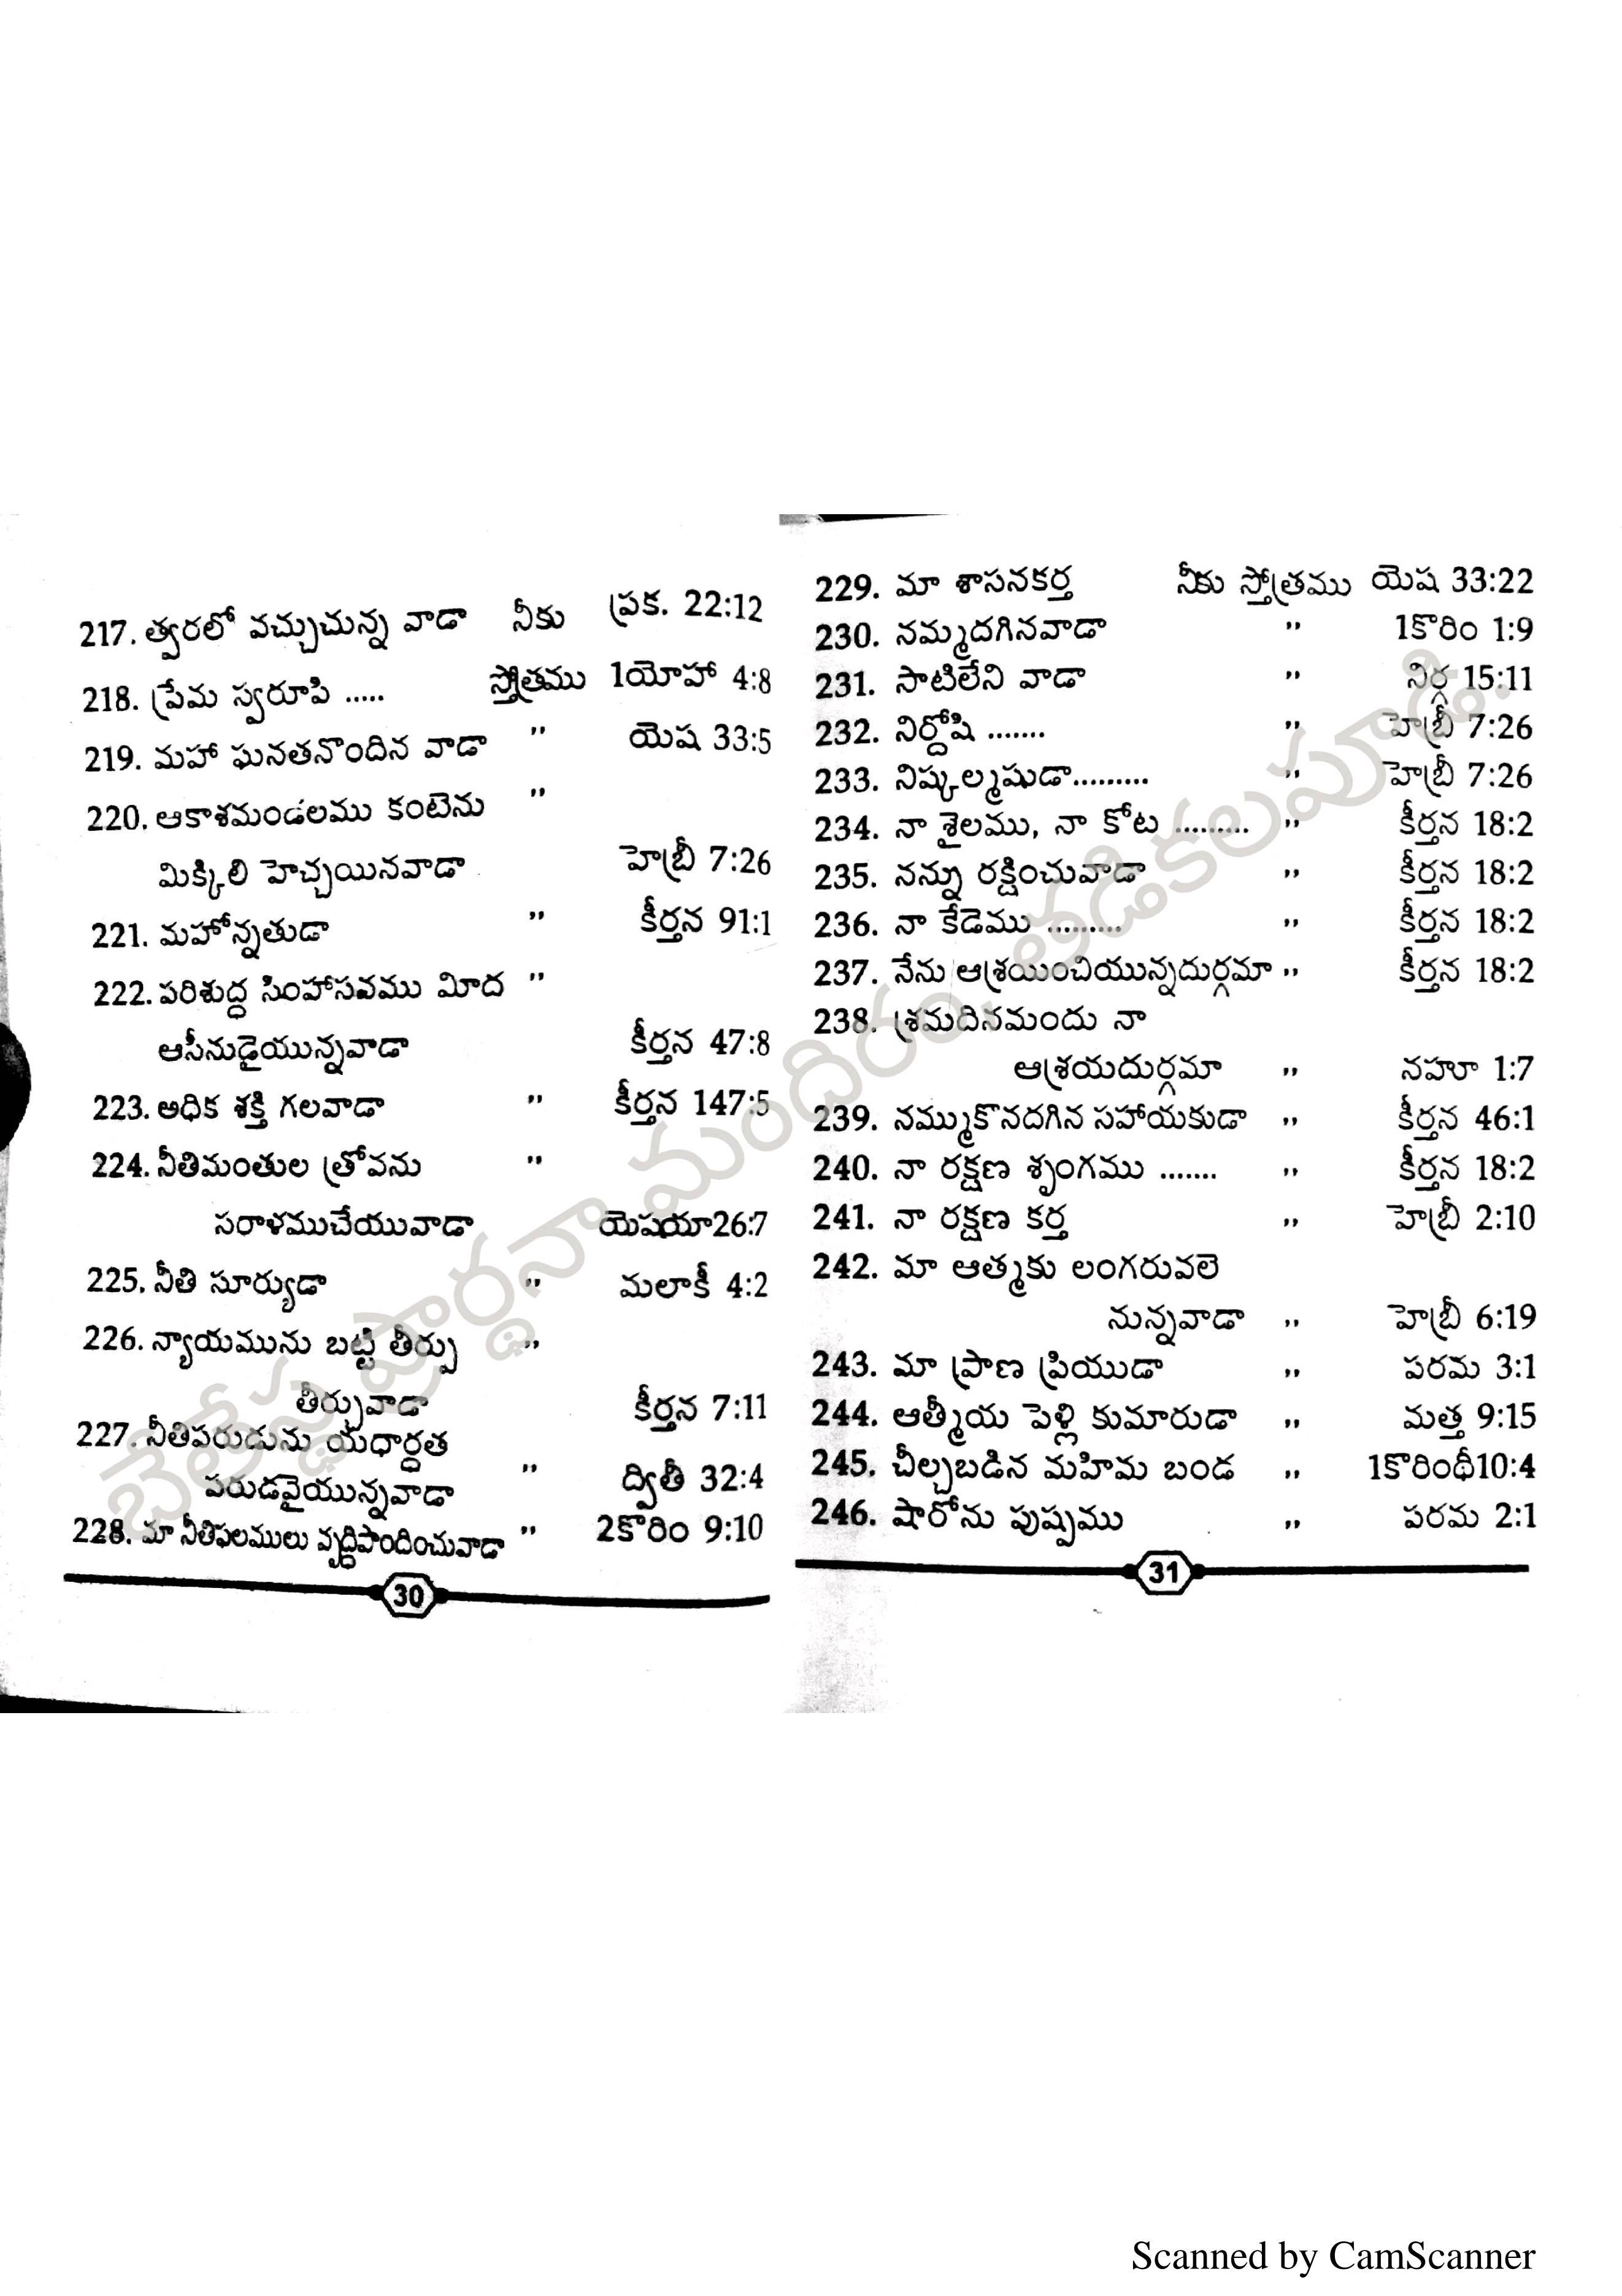 217. త్వరలో వచ్చుచున్న వాడా నీకు ప్రక. 22:12
218. ప్రేమ స్వరూపి ..... స్తోత్రము 1యోహా 4:8
219. మహా ఘనతనొందిన వాడా " యెష 33:5
220. ఆకాశమండలము కంటెను "
మిక్కిలి హెచ్చయినవాడా హెబ్రీ 7:26
221. మహోన్నతుడా " కీర్తన 91:1
222. పరిశుద్ధ సింహాసవము మీద "
ఆసీనుడైయున్నవాడా కీర్తన 47:8
223. అధిక శక్తి గలవాడా " కీర్తన 147:5
224. నీతిమంతుల త్రోవను "
సరాళముచేయువాడా యెషయా26:7
225. నీతి సూర్యుడా " మలాకీ 4:2
226. న్యాయమును బట్టి తీర్పు "
తీర్చువాడా కీర్తన 7:11
227. నీతిపరుడును యధార్ధత
పరుడవైయున్నవాడా " ద్వితీ 32:4
228. మా నీతిఫలములు వృద్ధిపొందించువాడా " 2కొరిం 9:10
30
229. మా శాసనకర్త నీకు స్తోత్రము యెష 33:22
230. నమ్మదగినవాడా " 1కొరిం 1:9
231. సాటిలేని వాడా " నిర్గ 15:11
232. నిర్దోషి ....... " హెబ్రీ 7:26
233. నిష్కల్మషుడా......... " హెబ్రీ 7:26
234. నా శైలము, నా కోట ......... " కీర్తన 18:2
235. నన్ను రక్షించువాడా " కీర్తన 18:2
236. నా కేడెము ......... " కీర్తన 18:2
237. నేను ఆశ్రయించియున్నదుర్గమా " కీర్తన 18:2
238. శ్రమదినమందు నా
ఆశ్రయదుర్గమా " నహూ 1:7
239. నమ్ముకొనదగిన సహాయకుడా " కీర్తన 46:1
240. నా రక్షణ శృంగము ....... " కీర్తన 18:2
241. నా రక్షణ కర్త " హెబ్రీ 2:10
242. మా ఆత్మకు లంగరువలె
నున్నవాడా " హెబ్రీ 6:19
243. మా ప్రాణ ప్రియుడా " పరమ 3:1
244. ఆత్మీయ పెళ్లి కుమారుడా " మత్త 9:15
245. చీల్చబడిన మహిమ బండ " 1కొరింథీ10:4
246. షారోను పుష్పము " పరమ 2:1
31
బేతేస్థ ప్రార్థనా మందిరం. తడికలపూడి.
Scanned by CamScanner